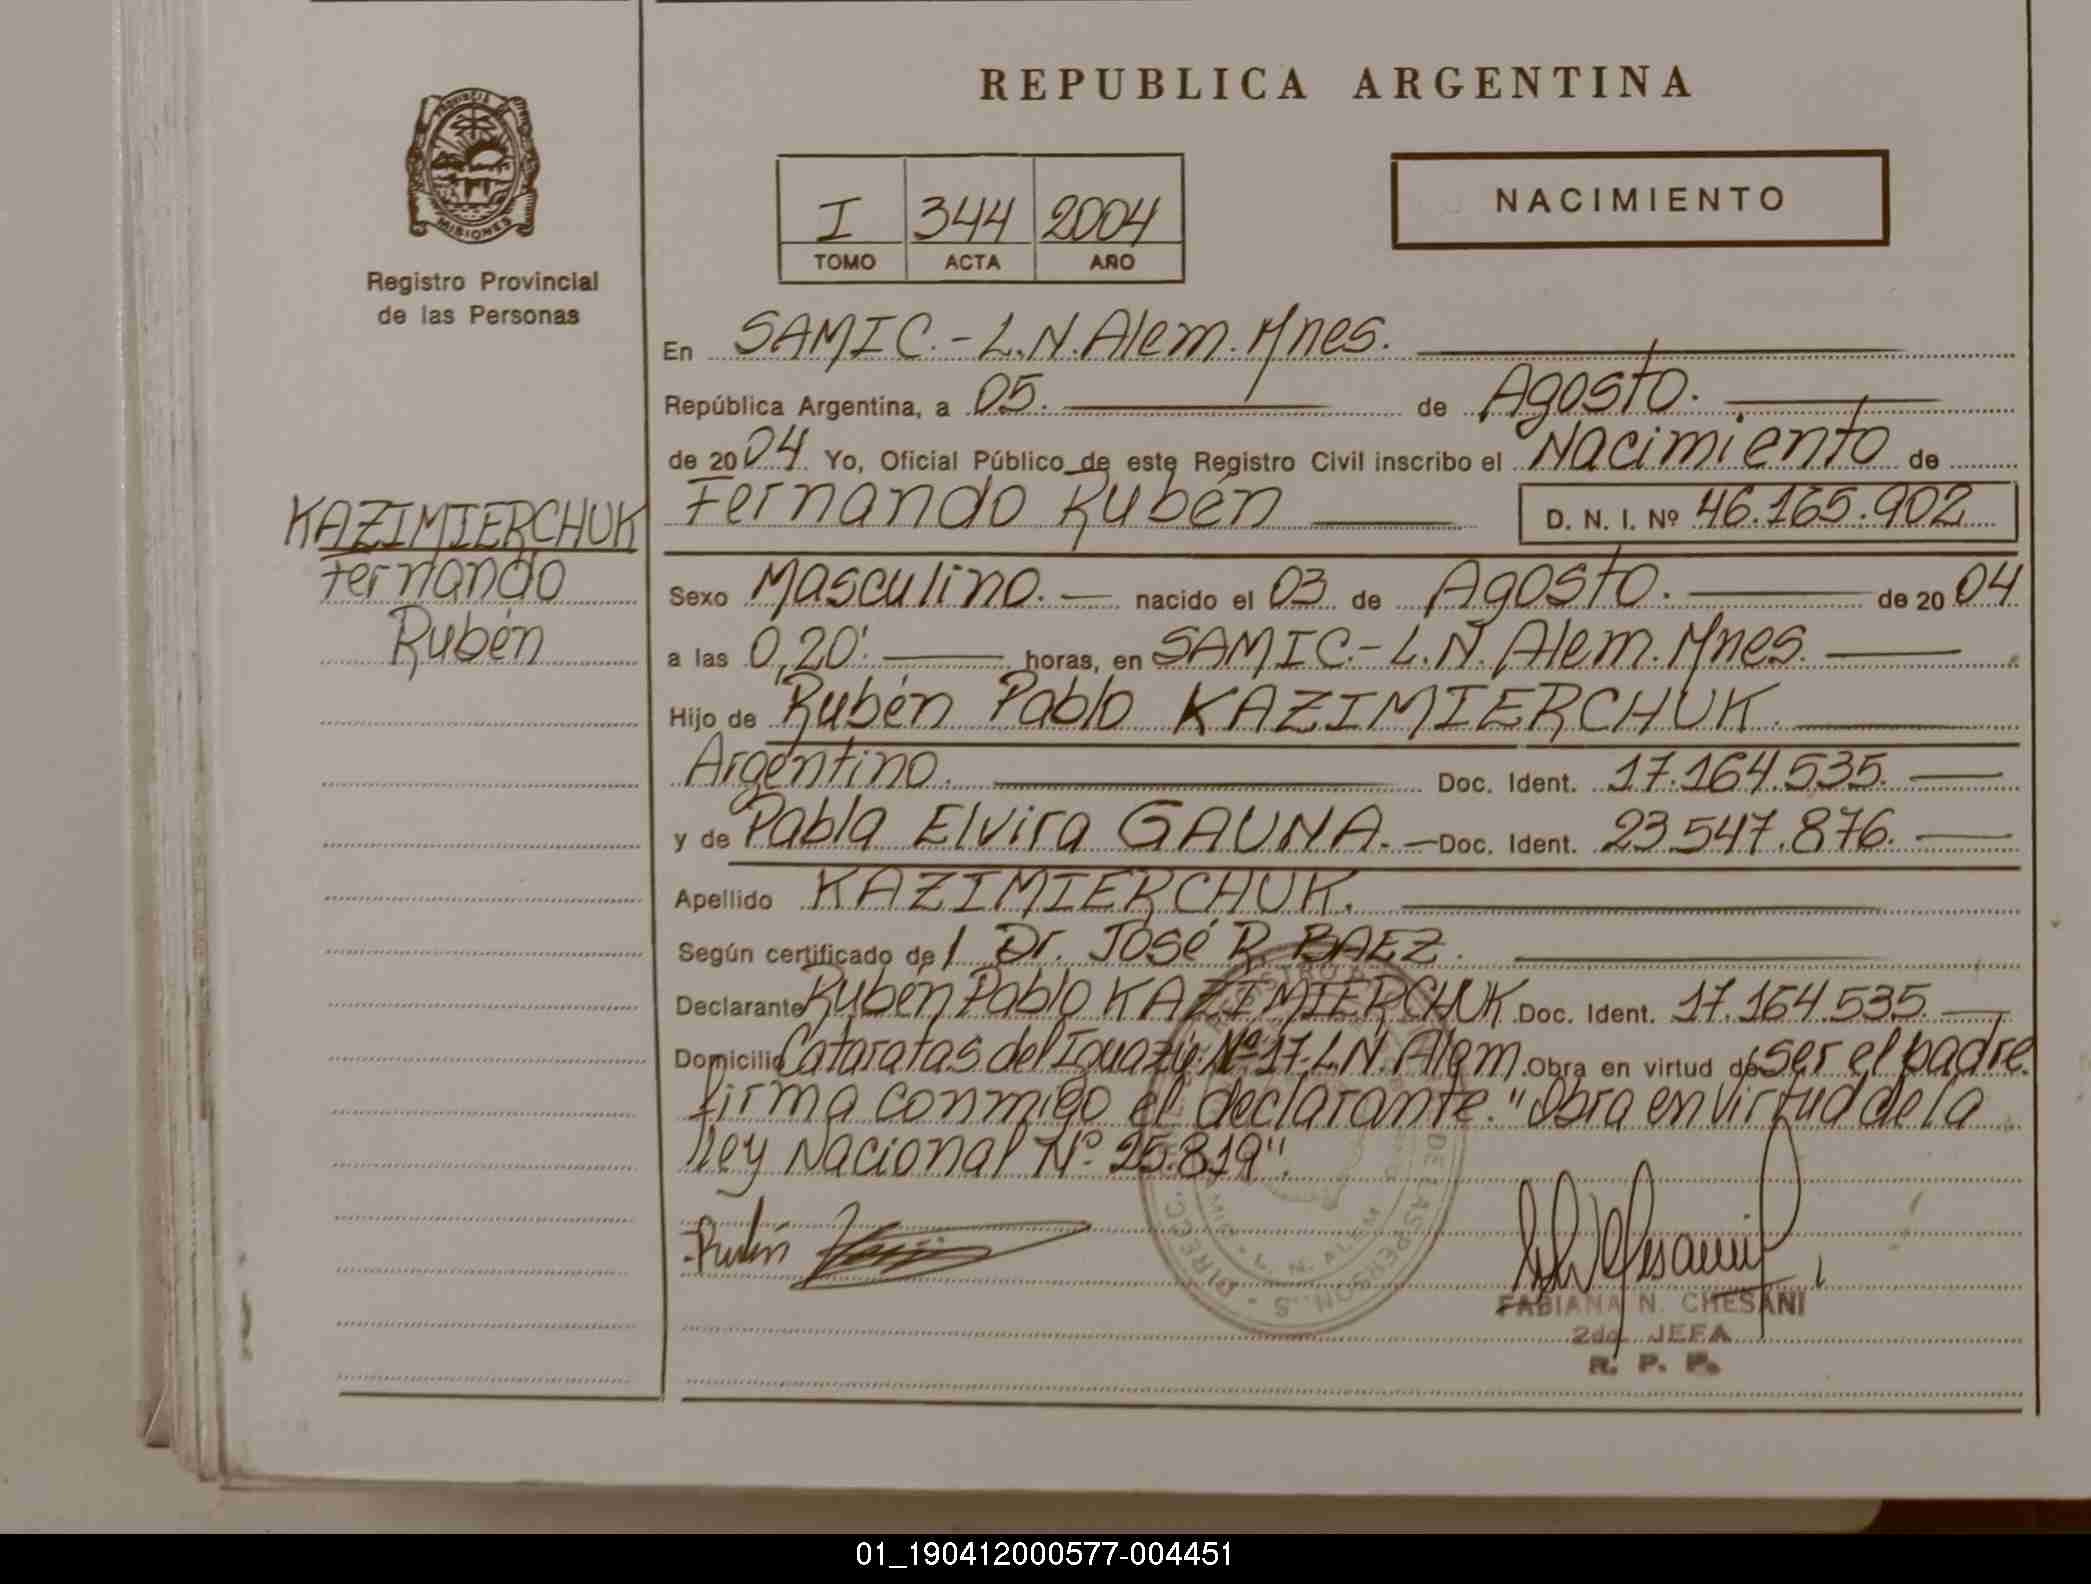 REPUBLICA ARGENTINA
PROVINCIA DE MISIONES
Registro Provincial
de las Personas
I 344 2004
TOMO ACTA AÑO
NACIMIENTO
En SAMIC.-L.N.Alem.Mnes.
República Argentina, a 05. de Agosto.
de 2004 Yo, Oficial Público de este Registro Civil inscribo el Nacimiento de
Fernando Rubén D. N. I. Nº 46.165.902
KAZIMIERCHUK
Fernando
Rubén
Sexo Masculino. nacido el 03 de Agosto. de 2004
a las 0,20' horas, en SAMIC.-L.N. Alem. Mnes.
Hijo de Rubén Pablo KAZIMIERCHUK.
Argentino. Doc. Ident. 17.164.535.
y de Pabla Elvira GAUNA. Doc. Ident. 23.547.876.
Apellido KAZIMIERCHUK.
Según certificado de/ Dr. José R. BAEZ.
Declarante Rubén Pablo KAZIMIERCHUK Doc. Ident. 17.164.535.
Domicilio Cataratas del Iguazú Nº 17-L.N. Alem. Obra en virtud de ser el padre.
firma conmigo el declarante. "Obra en virtud de la
ley Nacional Nº 25.819".
Rubén
L. N. ALEM
DE LAS PERSONAS
FABIANA N. CHESANI
2da. JEFA
R. P. P.
01_190412000577-004451